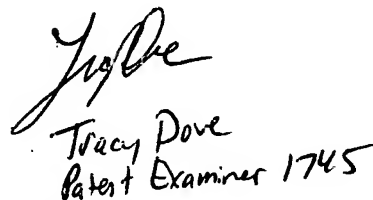 Tracy Dove
Patent Examiner 1745